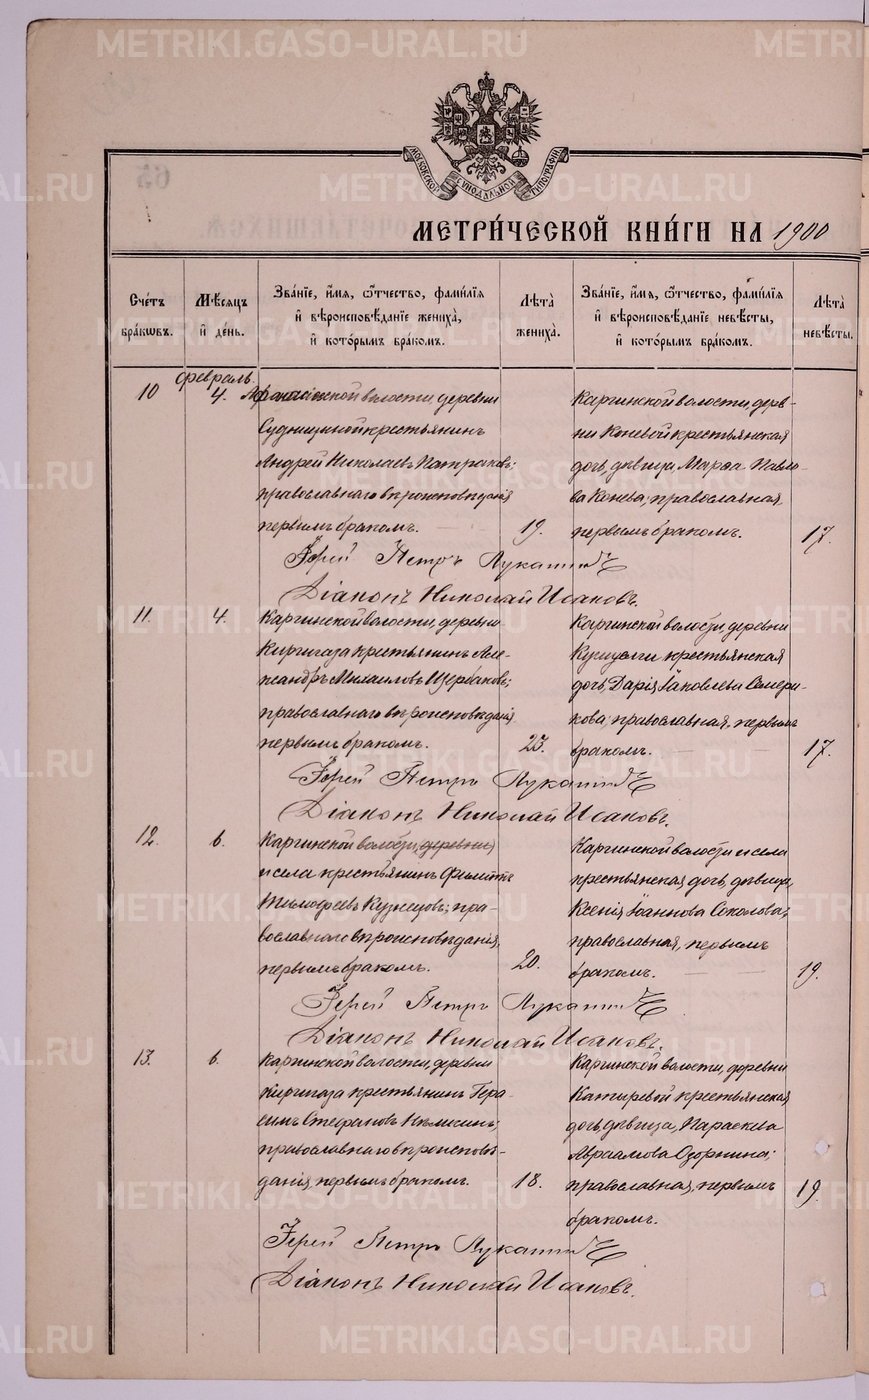 METRIKI.GASO-URAL.RU
МОСКОВСКОЙ СѴНОДАЛЬНОЙ ТИПОГРАФІИ
МЕТРИ́ЧЕСКОЙ КНИ́ГИ НА 1900
Сче́тъ бра́кѡвъ.
Мѣ́сѧцъ и҆ де́нь.
Зва́нїе, и҆́мѧ, ѻ҆́тчество, фами́лїѧ
и҆ вѣроисповѣ́данїе жениха̀,
и҆ кото́рымъ бра́комъ.
Лѣ́та жениха̀.
Зва́нїе, и҆́мѧ, ѻ҆́тчество, фами́лїѧ
и҆ вѣроисповѣ́данїе невѣ́сты,
и҆ кото́рымъ бра́комъ.
Лѣ́та невѣ́сты.
февраль
10 4. волости, деревни
крестьянинъ
Андрей Николаевъ Патраковъ;
православнаго вѣроисповѣданія
первымъ бракомъ. 19.
Каргинской волости, дерев-
ни Коневой крестьянская
дочь, дѣвица, Марѳа Павло-
ва Конева; православная
первымъ бракомъ. 17.
Іерей Петръ
Діаконъ Николай Исаковъ.
11. 4. Каргинской волости, деревни
Киргизза крестьянинъ Але-
ксандръ Михаиловъ Щербаковъ;
православнаго вѣроисповѣданія
первымъ бракомъ. 23.
Каргинской волости, деревни
крестьянская
дочь, Дарія Іаковлева Семери-
кова; православная, первымъ
бракомъ. 17.
Іерей Петръ
Діаконъ Николай Исаковъ.
12. 6. Каргинской волости, деревни
и села крестьянинъ Филиппъ
Тимофеевъ Кузнецовъ; пра-
вославнаго вѣроисповѣданія,
первымъ бракомъ. 20.
Каргинской волости и села
крестьянская дочь, дѣвица,
Ксенія Іоаннова Соколова;
православная, первымъ
бракомъ. 19.
Іерей Петръ
Діаконъ Николай Исаковъ.
13. 6. Каргинской волости, деревни
крестьянинъ Гера-
симъ Стефановъ
православнаго вѣроисповѣ-
данія, первымъ бракомъ. 18.
Каргинской волости, деревни
крестьянская
дочь, дѣвица, Параскева
Авраамова Озорнина;
православная, первымъ 19.
бракомъ.
Іерей Петръ
Діаконъ Николай Исаковъ.